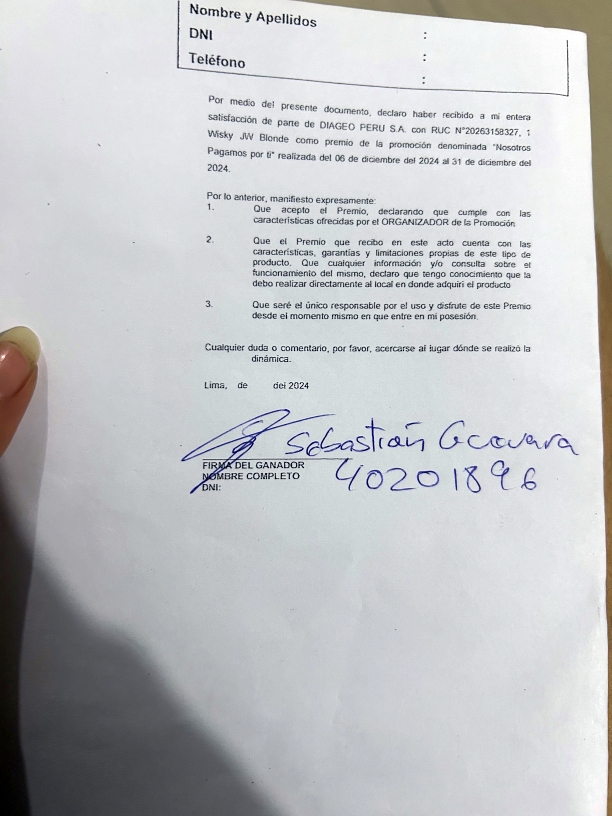 Nombre y Apellidos :
DNI :
Teléfono :
Por medio del presente documento, declaro haber recibido a mi entera
satisfacción de parte de DIAGEO PERU S.A. con RUC N°20263158327, 1
Wisky JW Blonde como premio de la promoción denominada "Nosotros
Pagamos por ti" realizada del 06 de diciembre del 2024 al 31 de diciembre del
2024.
Por lo anterior, manifiesto expresamente:
1. Que acepto el Premio, declarando que cumple con las
características ofrecidas por el ORGANIZADOR de la Promoción
2. Que el Premio que recibo en este acto cuenta con las
características, garantías y limitaciones propias de este tipo de
producto. Que cualquier información y/o consulta sobre el
funcionamiento del mismo, declaro que tengo conocimiento que la
debo realizar directamente al local en donde adquirí el producto
3. Que seré el único responsable por el uso y disfrute de este Premio
desde el momento mismo en que entre en mi posesión.
Cualquier duda o comentario, por favor, acercarse al lugar dónde se realizó la
dinámica.
Lima, de del 2024
Sebastián
FIRMA DEL GANADOR
NOMBRE COMPLETO
DNI: 40201896